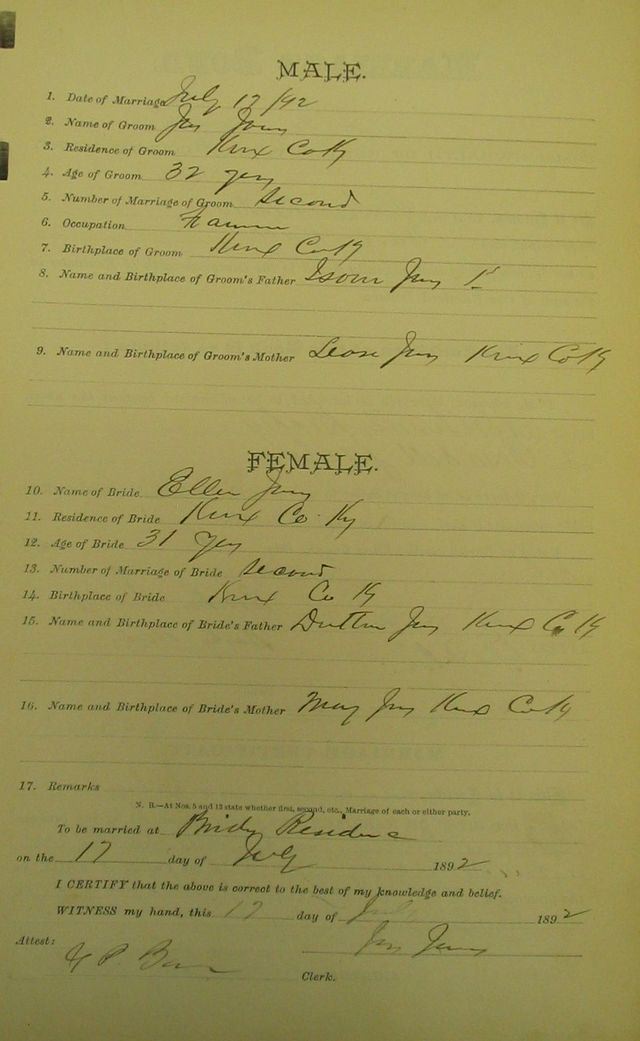 MALE.
1. Date of Marriage July 17/92
2. Name of Groom
3. Residence of Groom Knox Co Ky
4. Age of Groom 32 yrs
5. Number of Marriage of Groom Second
6. Occupation Farmer
7. Birthplace of Groom Knox Co Ky
8. Name and Birthplace of Groom's Father Isom
9. Name and Birthplace of Groom's Mother Knox Co Ky
FEMALE.
10. Name of Bride Ellen
11. Residence of Bride Knox Co. Ky
12. Age of Bride 31 yrs
13. Number of Marriage of Bride Second
14. Birthplace of Bride Knox Co Ky
15. Name and Birthplace of Bride's Father Knox Co Ky
16. Name and Birthplace of Bride's Mother Mary Knox Co Ky
17. Remarks
N. B.—At Nos. 5 and 13 state whether first, second, etc., Marriage of each or either party.
To be married at Brides Residence
on the 17 day of July 1892
I CERTIFY that the above is correct to the best of my knowledge and belief.
WITNESS my hand, this 17 day of July 1892
Attest:
Clerk.